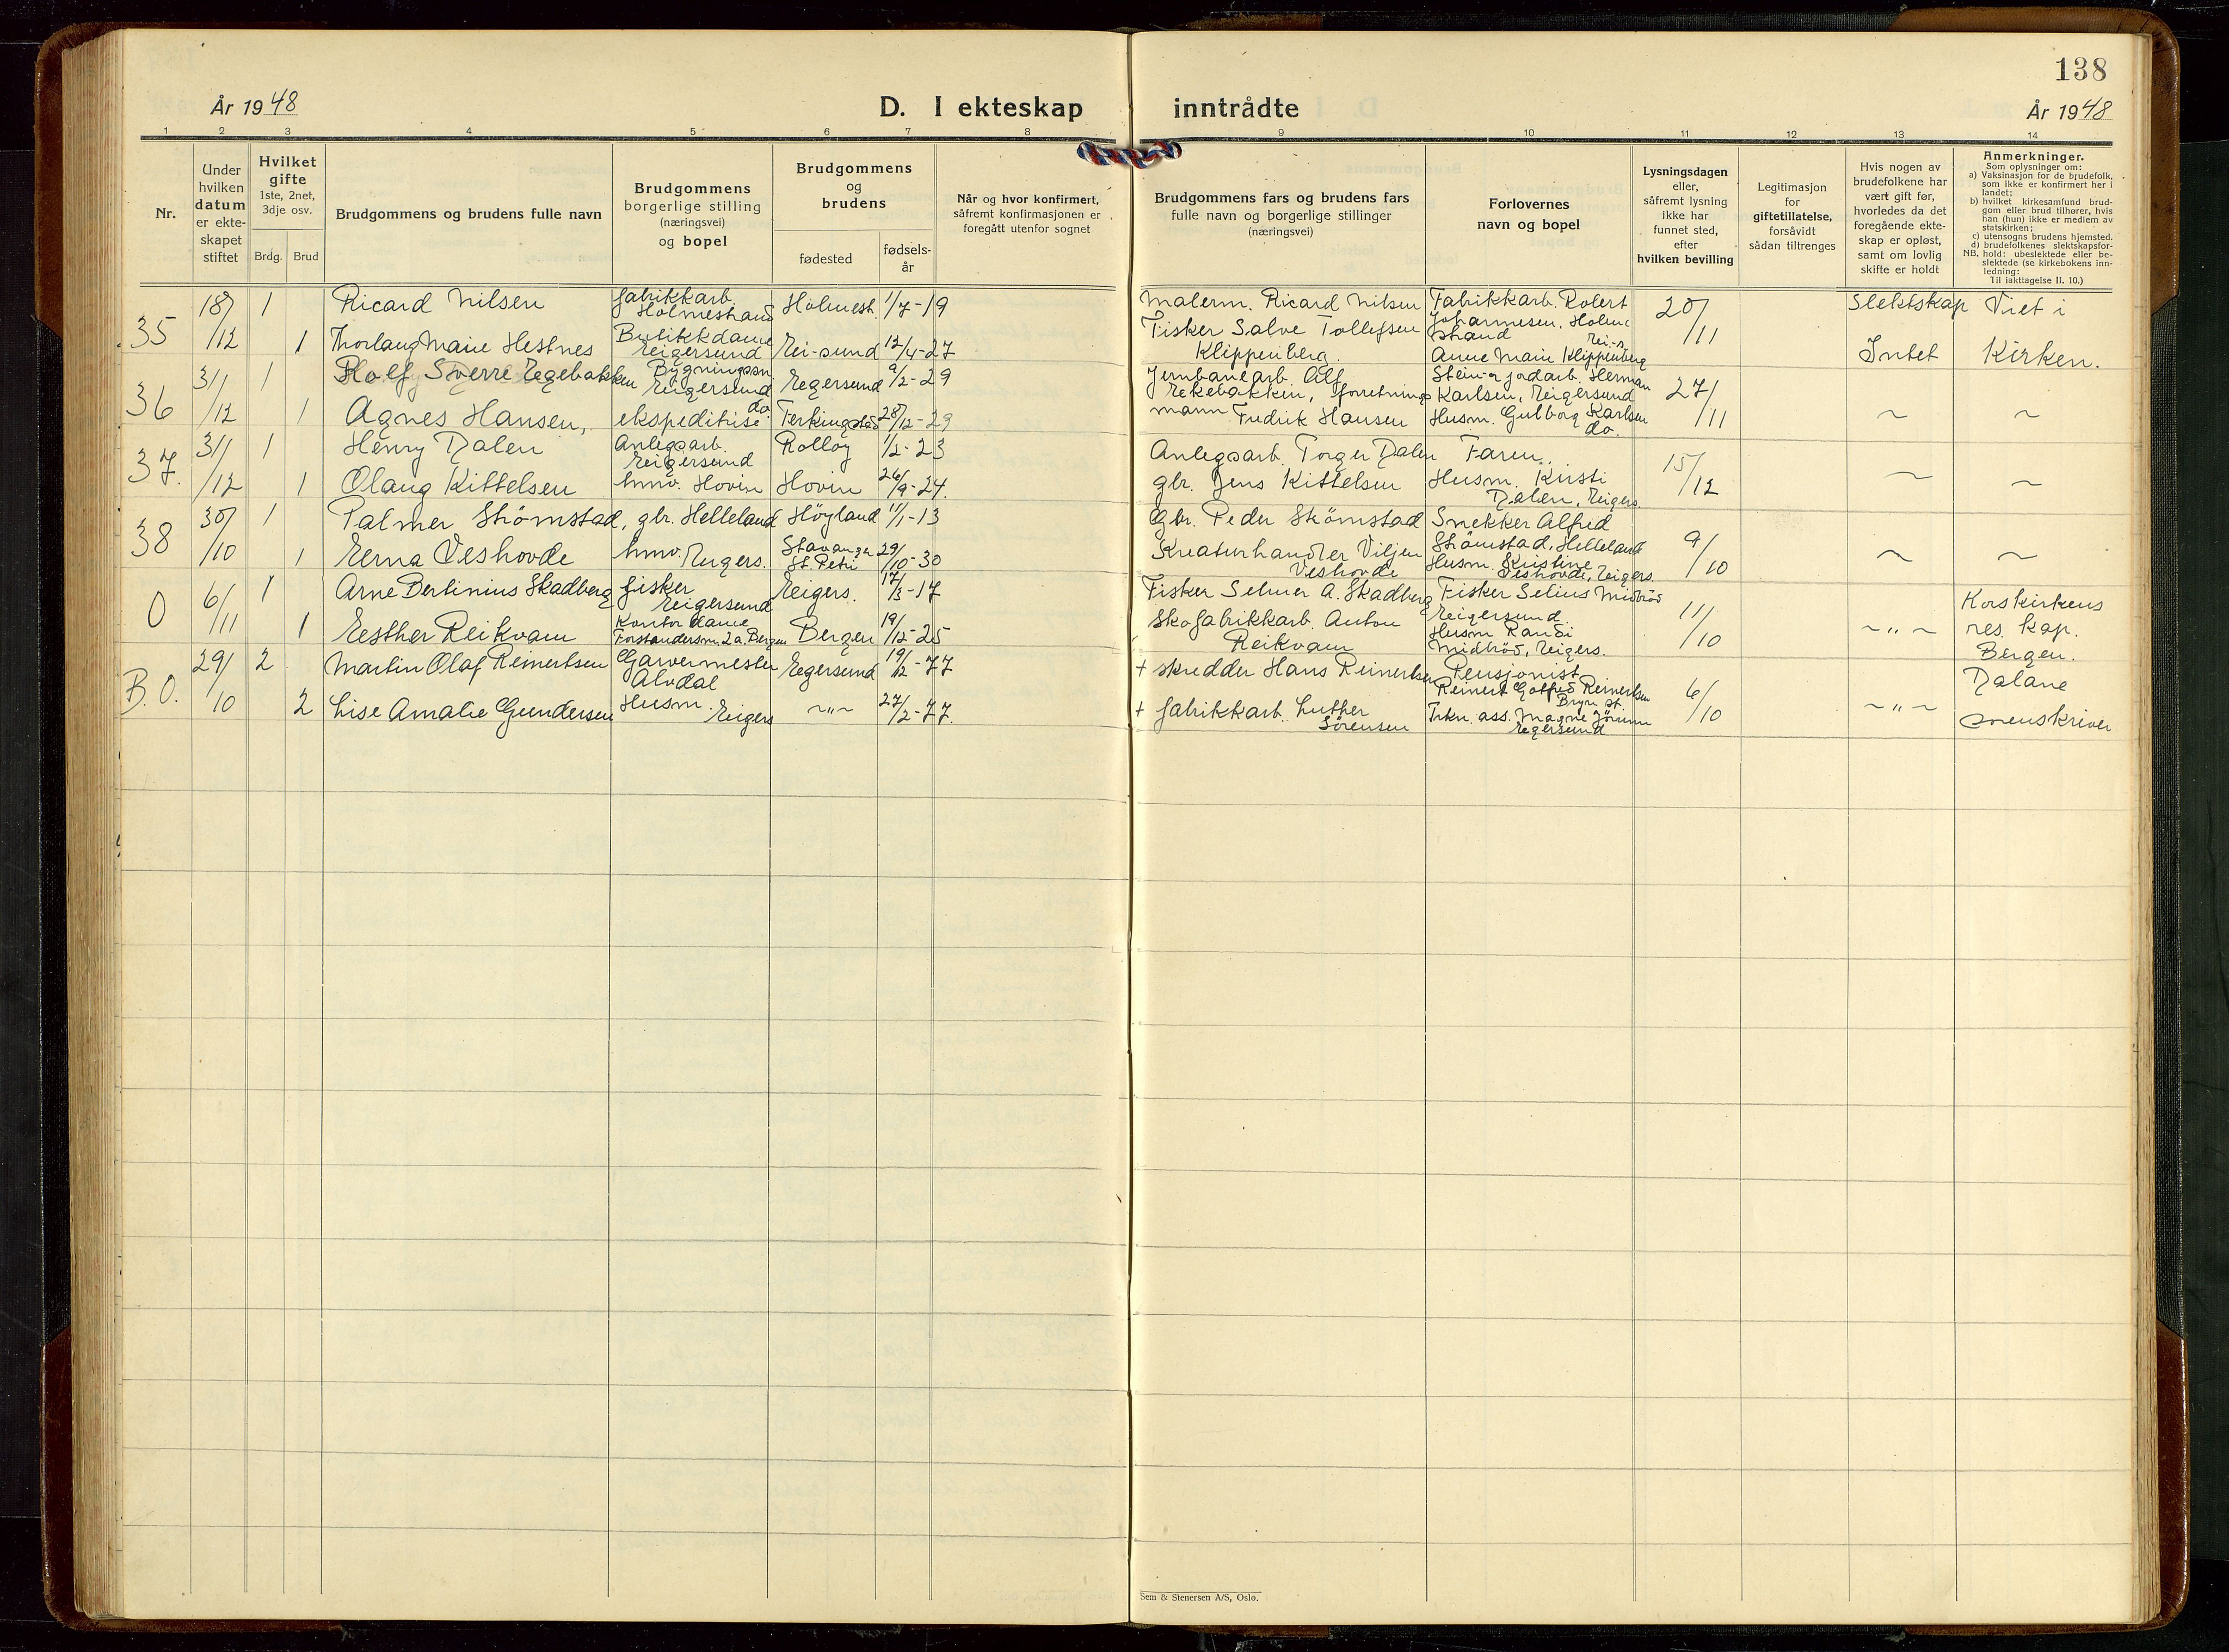 138
År 1948
D. I ekteskap inntrådte
År 1948
1 2 3 4 5 6 7 8 9 10 11 12 13 14
Nr.
Under
hvilken
datum
er ekte-
skapet
stiftet
Hvilket
gifte
1ste, 2net,
3dje osv.
Brdg. Brud
Brudgommens og brudens fulle navn
Brudgommens
borgerlige stilling
(næringsvei)
og bopel
Brudgommens
og
brudens
fødested
fødsels-
år
Når og hvor konfirmert,
såfremt konfirmasjonen er
foregått utenfor sognet
Brudgommens fars og brudens fars
fulle navn og borgerlige stillinger
(næringsvei)
Forlovernes
navn og bopel
Lysningsdagen
eller,
såfremt lysning
ikke har
funnet sted,
efter
hvilken bevilling
Legitimasjon
for
giftetillatelse,
forsåvidt
sådan tiltrenges
Hvis nogen av
brudefolkene har
vært gift før,
hvorledes da det
foregående ekte-
skap er opløst,
samt om lovlig
skifte er holdt
Anmerkninger.
Som oplysninger om:
a) Vaksinasjon for de brudefolk,
som ikke er konfirmert her i
landet;
b) hvilket kirkesamfund brud-
gom eller brud tilhører, hvis
han (hun) ikke er medlem av
statskirken;
c) utensogns brudens hjemsted.
d) brudefolkenes slektskapsfor-
NB. hold: ubeslektede eller be-
slektede (se kirkebokens inn-
ledning:
Til iakttagelse II. 10.)
35
18/12
1
Ricard Nilsen
fabrikkarb.
Holmestrand
Holmest.
1/7-19
Malerm. Ricard Nilsen
Fabrikkarb. Robert
Johannesen, Holm
strand
20/11
Slektskap
Viet i
1
Thorlaug Marie Hestnes
Butikkdame
Eigersund
Ei-sund
12/4-27
Fisker Salve Tollefsen
Klippenberg.
Ei-s
Anne Marie Klippenberg
Intet
Kirken.
36
31/12
1
Rolf Sverre Egebakken
Bygningssn
Eigersund
Egersund
9/2-29
Jernbanearb. Alf
Ekebakken, forretnings
Stein- og jordarb. Herman
Karlsen, Eigersund
27/11
1
Agnes Hansen,
do.
ekspeditrise
Ferkingstad
28/12-29
mann Fredrik Hansen
Husm. Gulborg Karlsen
do.
~
~
37.
31/12
1
Henry Dalen
Anlegsarb.
Eigersund
Rolløy
1/2-23
Anlegsarb. Torger Dalen
Faren.
15/12
1
Olaug Kittelsen
hmv. Hovin
Hovin
26/9-24.
gbr. Jens Kittelsen
Husm. Kirsti
Dalen, Eigers.
~
~
38
30/10
1
Palmer Strömstad,
gbr. Helleland
Höyland
11/1-13
Gbr. Peder Strömstad
Snekker Alfred
Strömstad, Helleland
9/10
1
Erna Veshovde
hmv. Eigers.
Stavanger
St. Petri
29/10-30
Kreaturhandler Viljen
Veshovde
Husm. Kristine
Veshovde, Eigers.
~
~
0
6/11
1
Arne Bertinius Skadberg
fisker
Eigersund
Eigers.
17/3-17
Fisker Selmer A. Skadberg
Fisker Selius Midbröd
Eigersund
11/10
Korskirkens
1
Esther Reikvam
Kontordame
Forstandersm. 2a. Bergen
Bergen
19/12-25
Skofabrikkarb. Anton
Reikvam
Husm Randi
Midbröd, Eigers.
~"~
res. kap.
Bergen.
B.O.
29/10
2
Martin Olaf Reinertsen
Garvermester
Alvdal
Egersund
19/12-77
+ skredder Hans Reinertsen
Pensjonist
Reinert Gotfred Reinertsen
Bryn st.
6/10
Dalane
2
Lise Amalie Gundersen
Husm.
Eigers
~"~
27/2-77.
+ fabrikkarb. Luther
Sörensen
Trkn. ass. Magne
Egersund
~"~
sorenskriver
Sem & Stenersen A/S, Oslo.